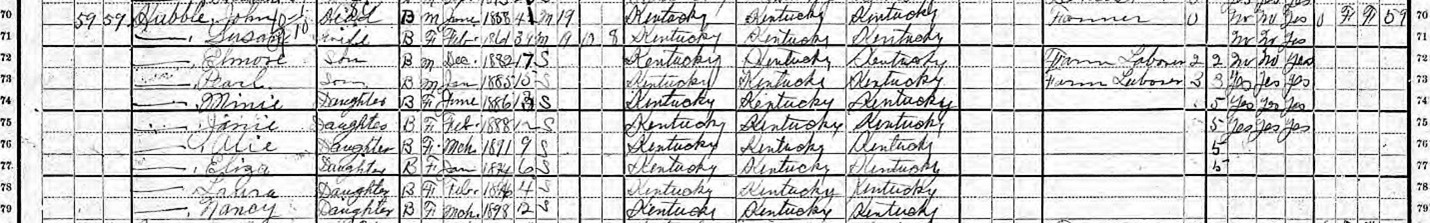 70 59 59 Hubble, John Head B M June 1858 41 M 19 Kentucky Kentucky Kentucky Farmer 0 No No Yes O F F 59 70
71 —, Susan Wife B F Feb 1861 39 M 19 10 8 Kentucky Kentucky Kentucky No No Yes 71
72 —, Elmore Son B M Dec. 1882 17 S Kentucky Kentucky Kentucky Farm Laborer 2 2 No No Yes 72
73 —, Earl Son B M Jan 1885 15 S Kentucky Kentucky Kentucky Farm Laborer 3 3 Yes Yes Yes 73
74 —, Minie Daughter B F June 1886 13 S Kentucky Kentucky Kentucky 5 Yes Yes Yes 74
75 —, Janie Daughter B F Feb. 1888 12 S Kentucky Kentucky Kentucky 5 Yes Yes Yes 75
76 —, Daughter B F Mch. 1891 9 S Kentucky Kentucky Kentucky 5 76
77 —, Eliza Daughter B F Jan 1894 6 S Kentucky Kentucky Kentucky 5 77
78 —, Laura Daughter B F Feb. 1896 4 S Kentucky Kentucky Kentucky 78
79 —, Nancy Daughter B F Mch. 1898 2 S Kentucky Kentucky Kentucky 79